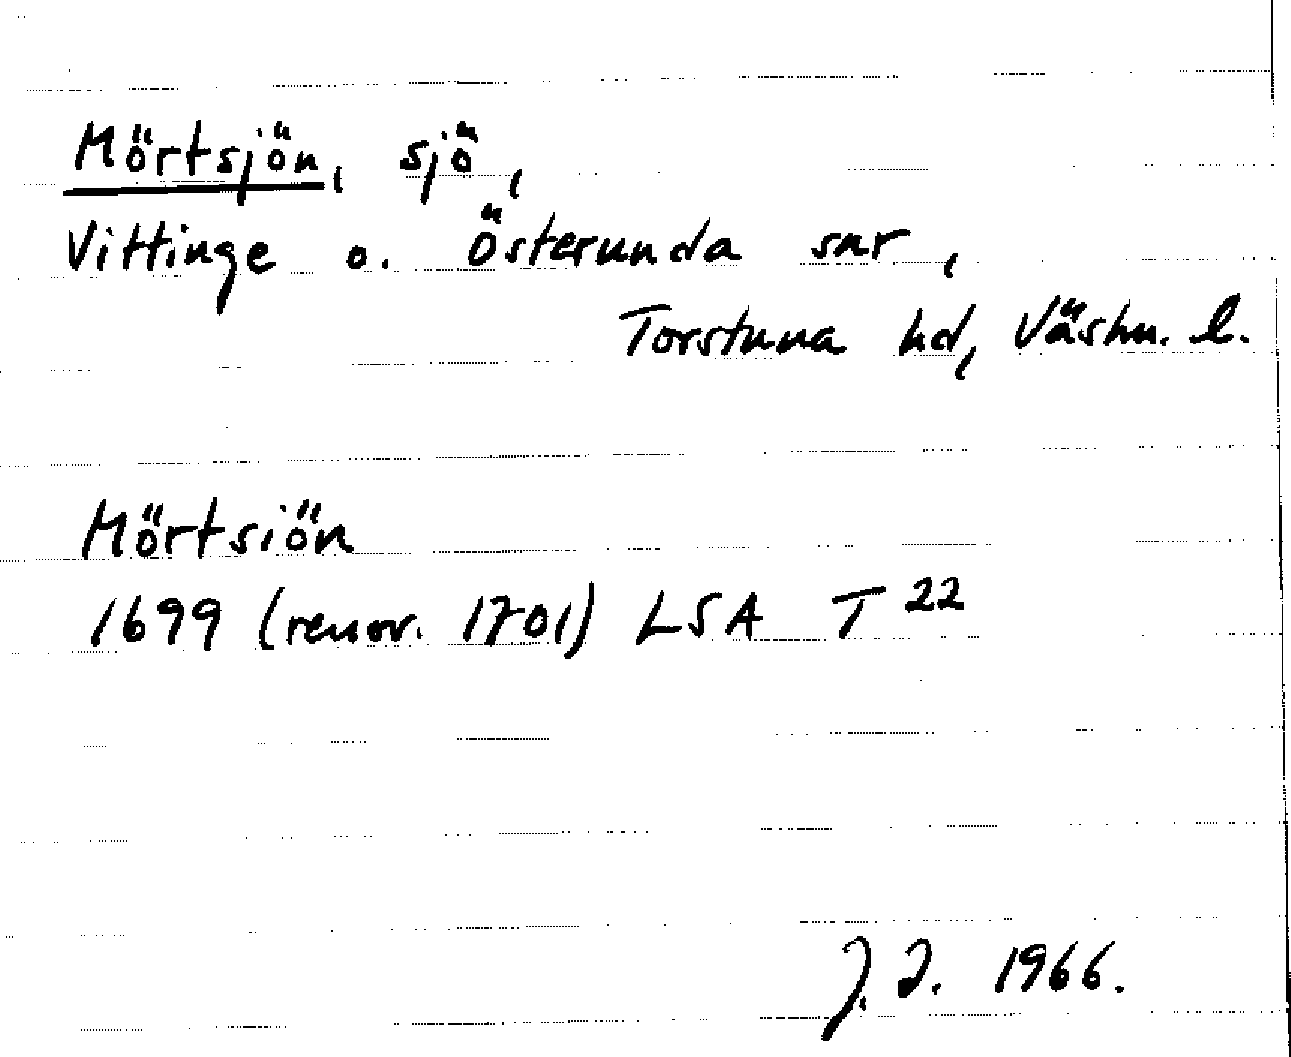 Mörtsjön, sjö,
Vittinge o. Österunda snr,
Torstuna hd, Västm. l.
Mörtsiön
1699 (renov. 1701) LSA T 22
J. I. 1966.